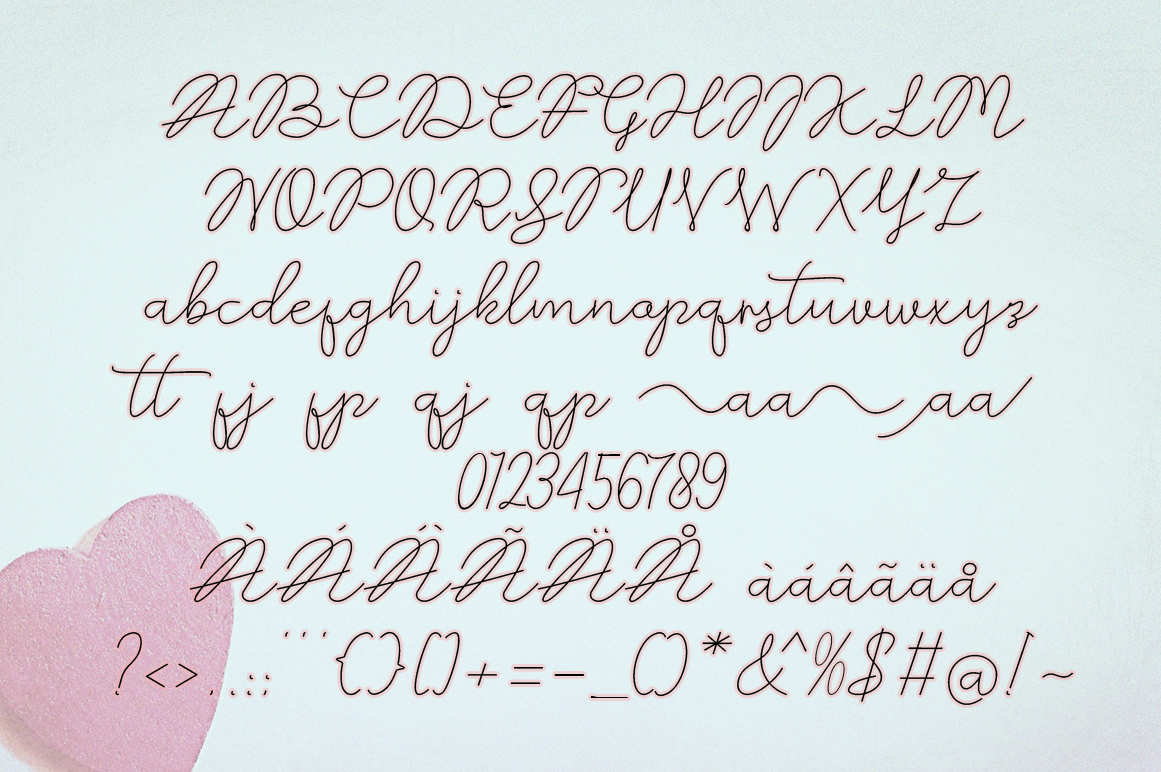 ABCDEFGHIJKLM
NOPQRSTUVWXYZ
abcdefghijklmnopqrstuvwxyz
tt fj fp qj qp aa aa
0123456789
ÀÁÂÃÄÅ àáâãäå
?<>,.:; ''' {}[]+=-_()*&^%$#@!~